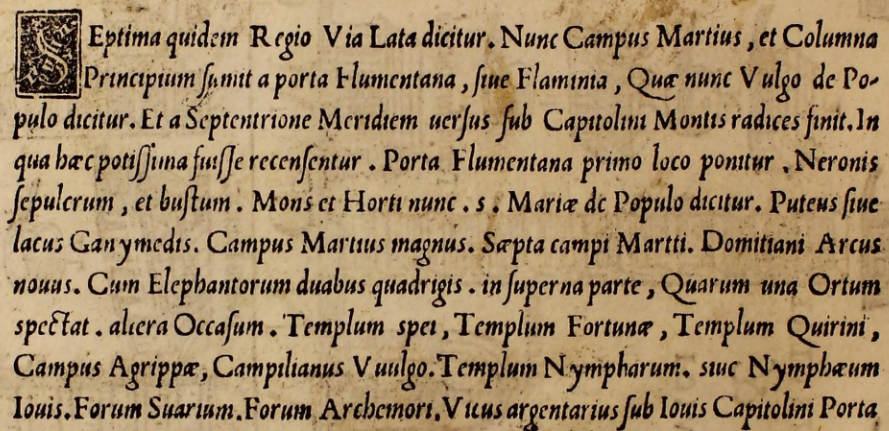 SEptima quidem Regio Via Lata dicitur. Nunc Campus Martius, et Columna
Principium sumit a porta Flumentana, siue Flaminia, Quæ nunc Vulgo de Po-
pulo dicitur. Et a Septentrione Meridiem uersus sub Capitolini Montis radices finit. In
qua hæc potissima fuisse recensentur. Porta Flumentana primo loco ponitur. Neronis
sepulcrum, et bustum. Mons et Horti nunc. s. Mariæ de Populo dicitur. Puteus siue
lacus Ganymedis. Campus Martius magnus. Sæpta campi Martii. Domitiani Arcus
nouus. Cum Elephantorum duabus quadrigis. in superna parte, Quarum una Ortum
spectat. altera Occasum. Templum spei, Templum Fortunæ, Templum Quirini,
Campus Agrippæ, Campilianus Vuulgo. Templum Nympharum. siue Nymphæum
Iouis. Forum Suarium. Forum Archemori. Vicus argentarius sub Iouis Capitolini Porta